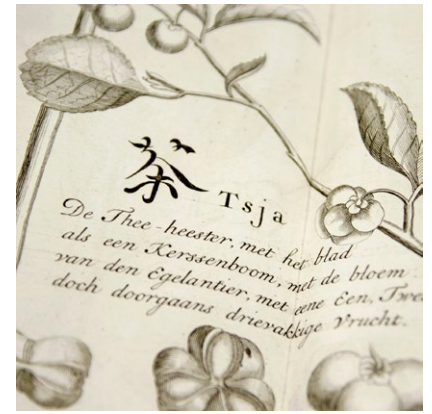 茶 Tsja
De Thee-heester, met het blad
als een Kerssenboom, met de bloem
van den Egelantier, met eene Een, Twee
doch doorgaans drievakkige Vrucht.